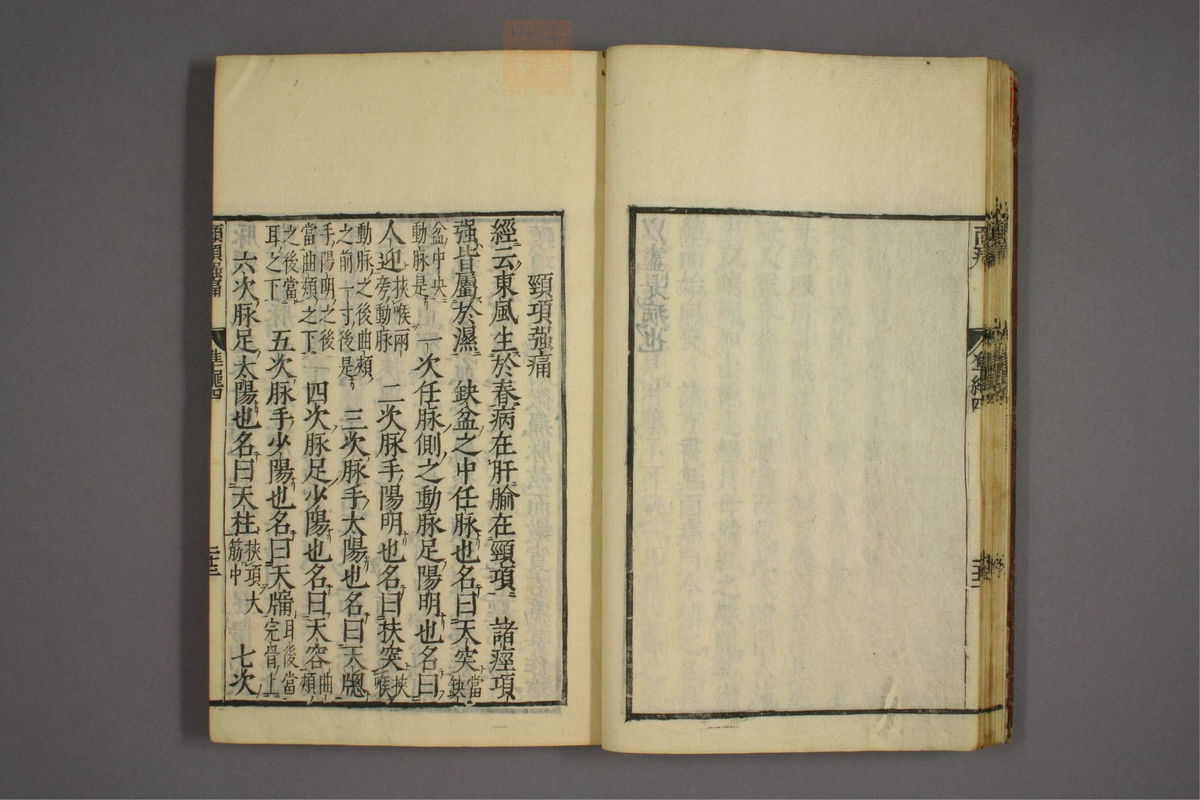 面
準繩四
以盡是病也
頸項强痛
經云東風生於春病在肝腧在頸項 諸痙項
强皆屬於濕 缺盆之中任脉也名曰天突當缺
盆中央動脉是 一次任脉側之動脉足陽明也名曰
人迎挾喉兩旁動脉 二次脉手陽明也名曰扶突挾喉
動脉之後曲頰之前一寸後是 三次脉手太陽也名曰天牕
手陽明之後當曲頰之下 四次脉足少陽也名曰天容曲頰
之後當耳之下 五次脉手少陽也名曰天牖耳後當完骨上
六次脉足太陽也名曰天柱挾項大筋中 七次
頸項强痛 準繩四 二十三